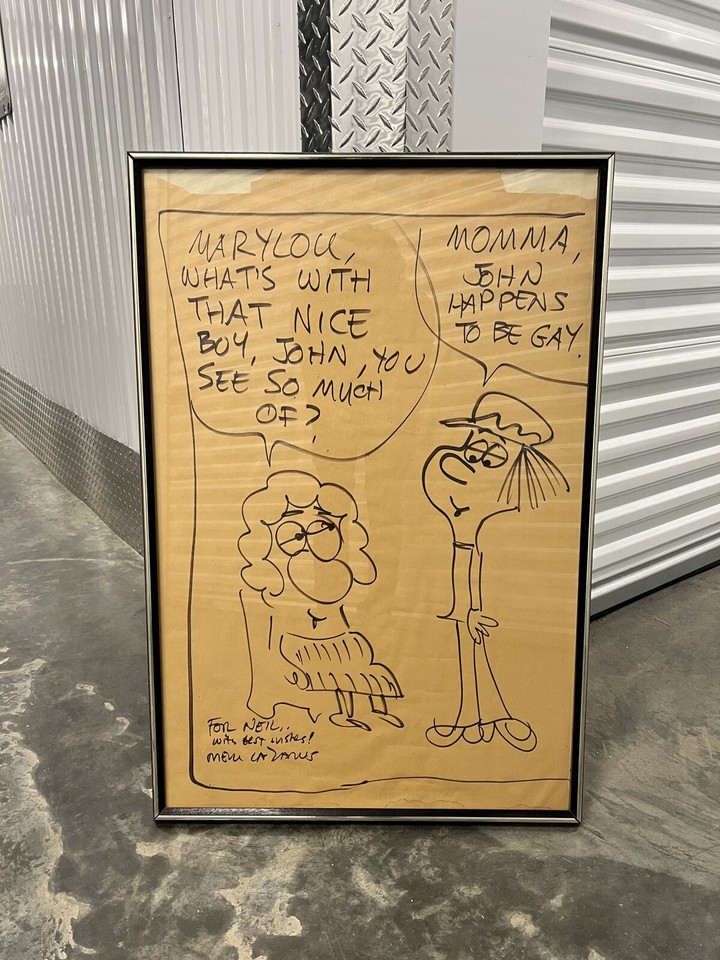 MARYLOU,
WHAT'S WITH
THAT NICE
BOY, JOHN, YOU
SEE SO MUCH
OF?
MOMMA,
JOHN
HAPPENS
TO BE GAY.
FOR NEIL..
with BEST wishes!
MELL LAZARUS